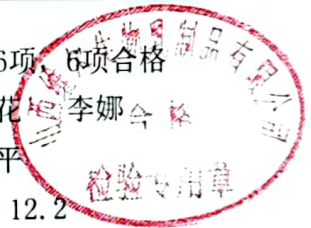 6项, 6项合格
花 李娜
平
12.2
制品有限公司
合格
检验专用章